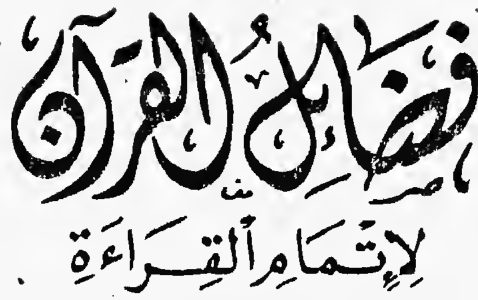 فَضَائِلُ القُرْآن
لِإِتْمَامِ ٱلْقِرَاءَةِ